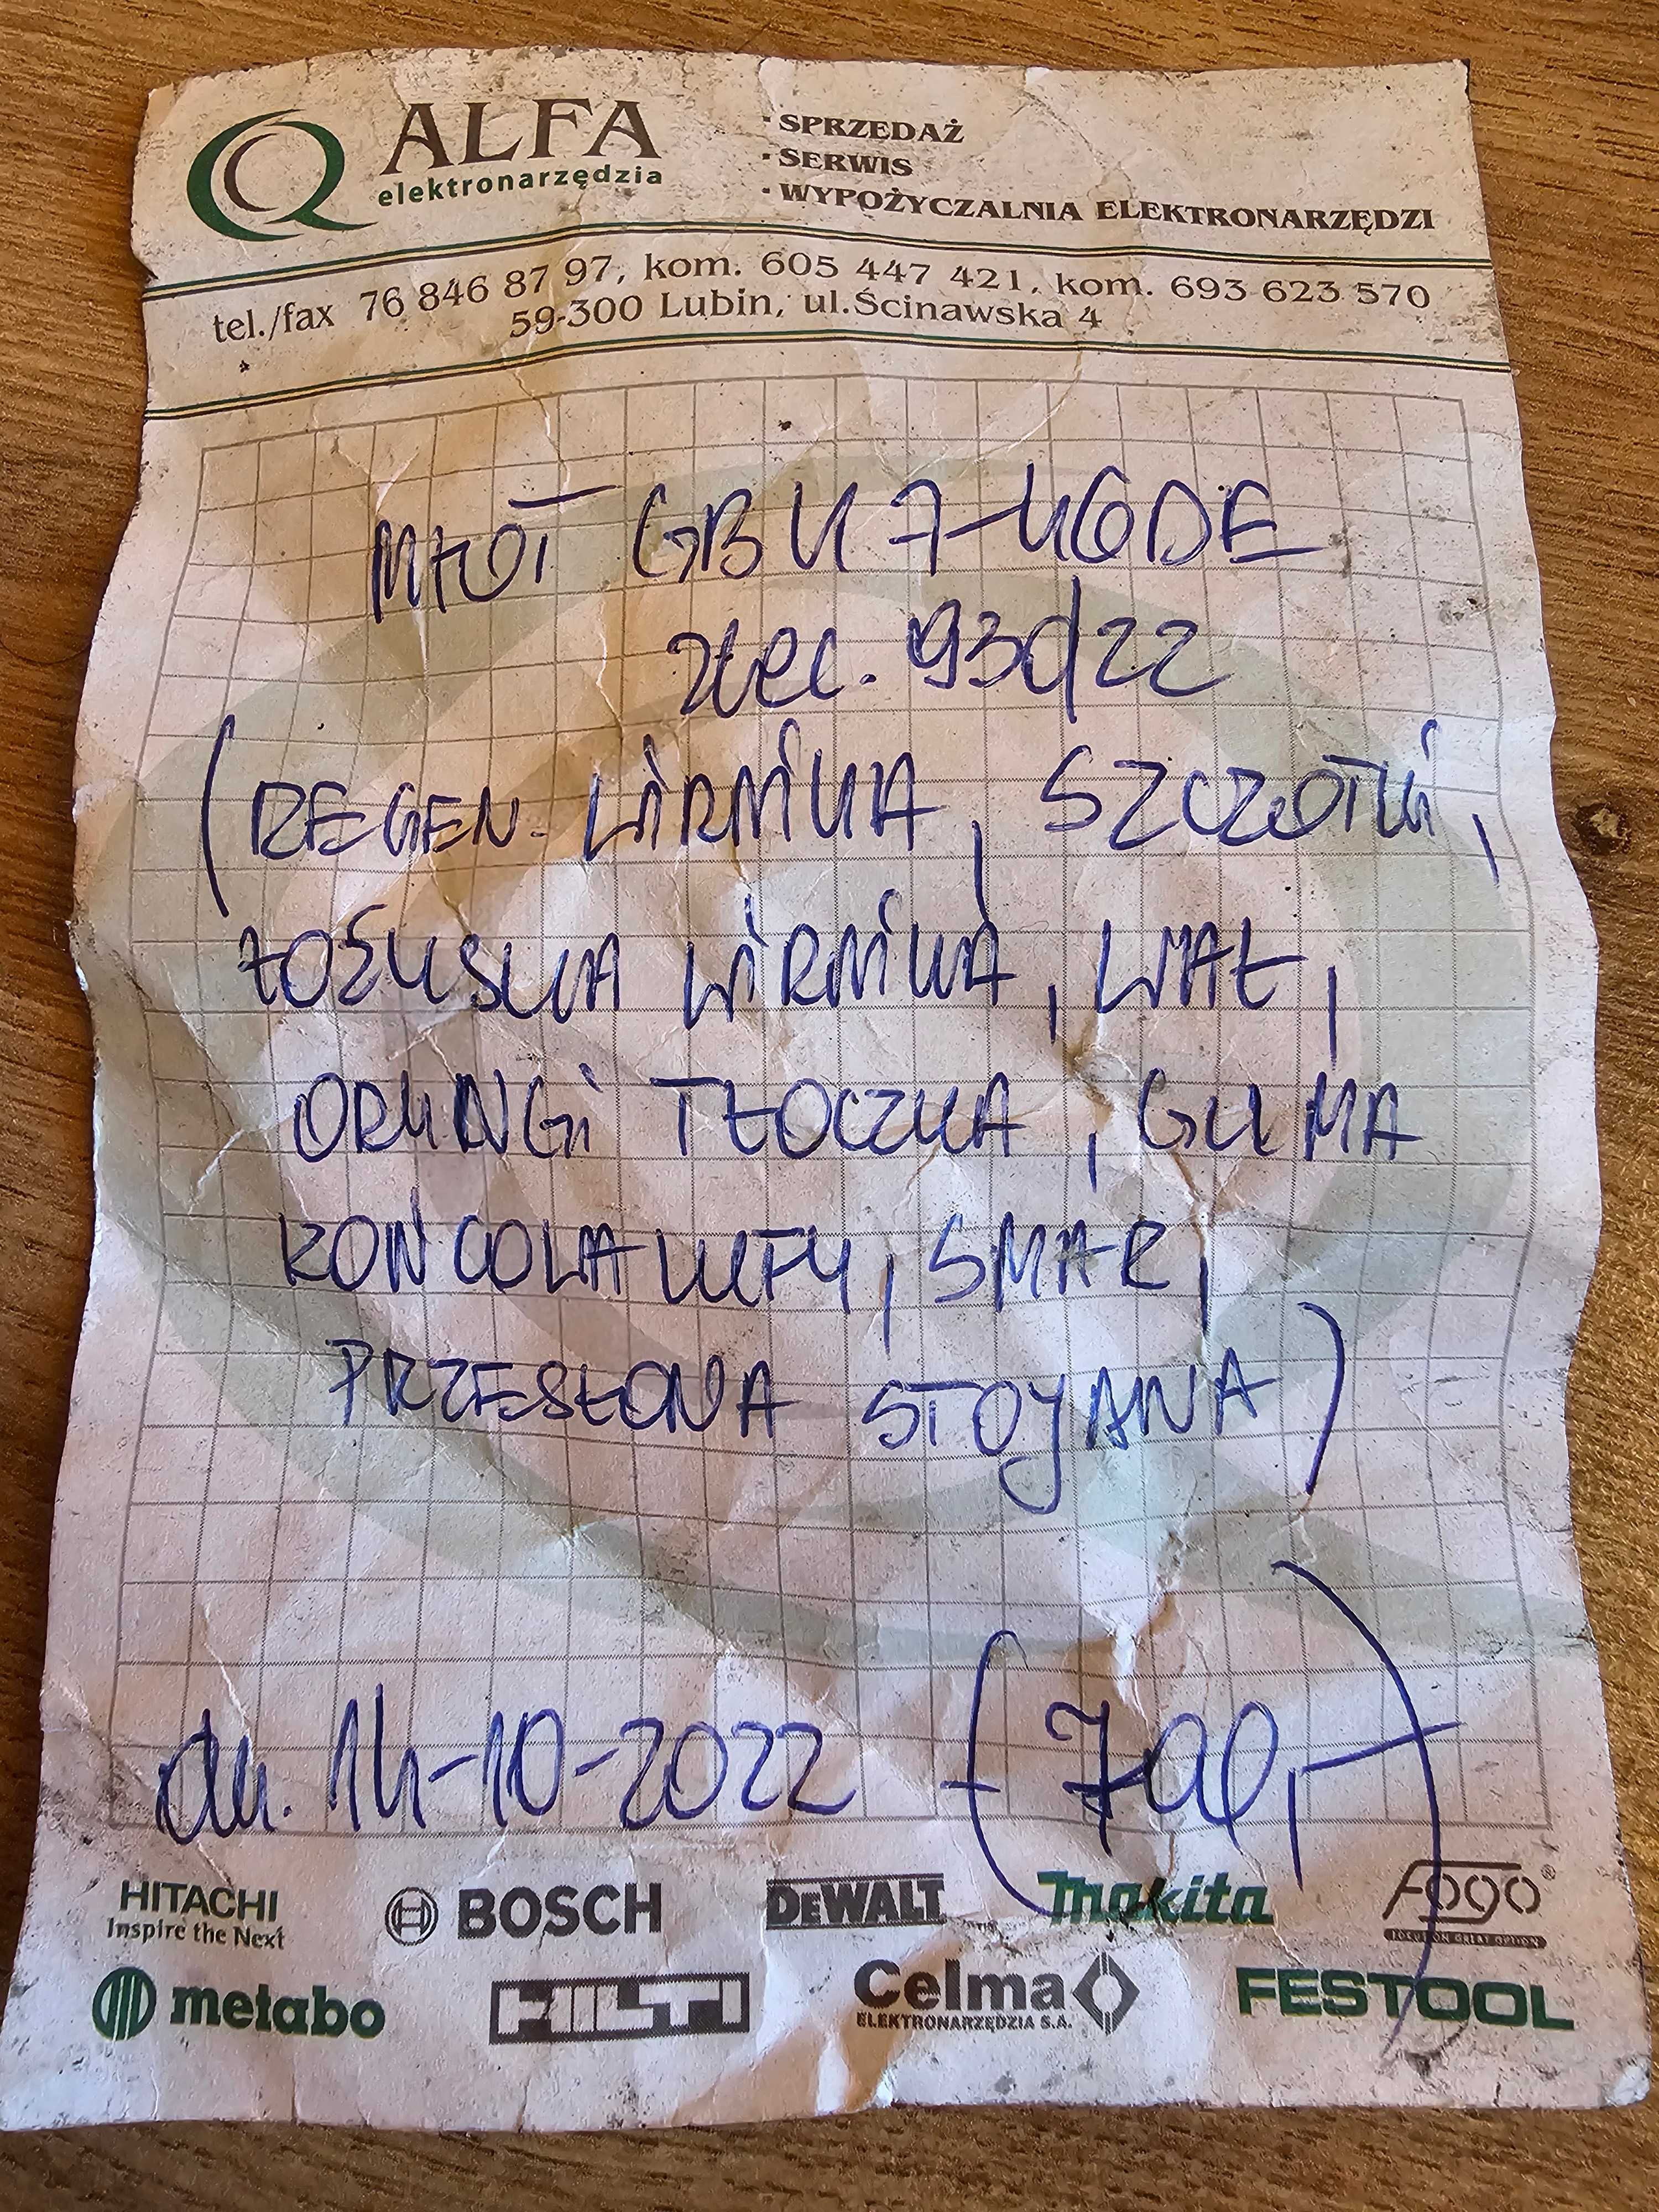 ALFA
elektronarzędzia
· SPRZEDAŻ
· SERWIS
· WYPOŻYCZALNIA ELEKTRONARZĘDZI
tel./fax 76 846 87 97, kom. 605 447 421, kom. 693 623 570
59-300 Lubin, ul.Ścinawska 4
MŁOT GBH 7-46DE
zlec. 930/22
(REGEN. WIRNIKA, SZCZOTKI,
ŁOŻYSKA WIRNIKA, WAŁ,
ORINGI TŁOCZKA, GUMA
KOŃCOWA LUFY, SMAR,
PRZESŁONA STOJANA)
dn. 14-10-2022 (700,-)
HITACHI
Inspire the Next
BOSCH
DEWALT
Makita
Fogo®
FOCUS ON GREAT OPTION
metabo
HILTI
Celma
ELEKTRONARZĘDZIA S.A.
FESTOOL